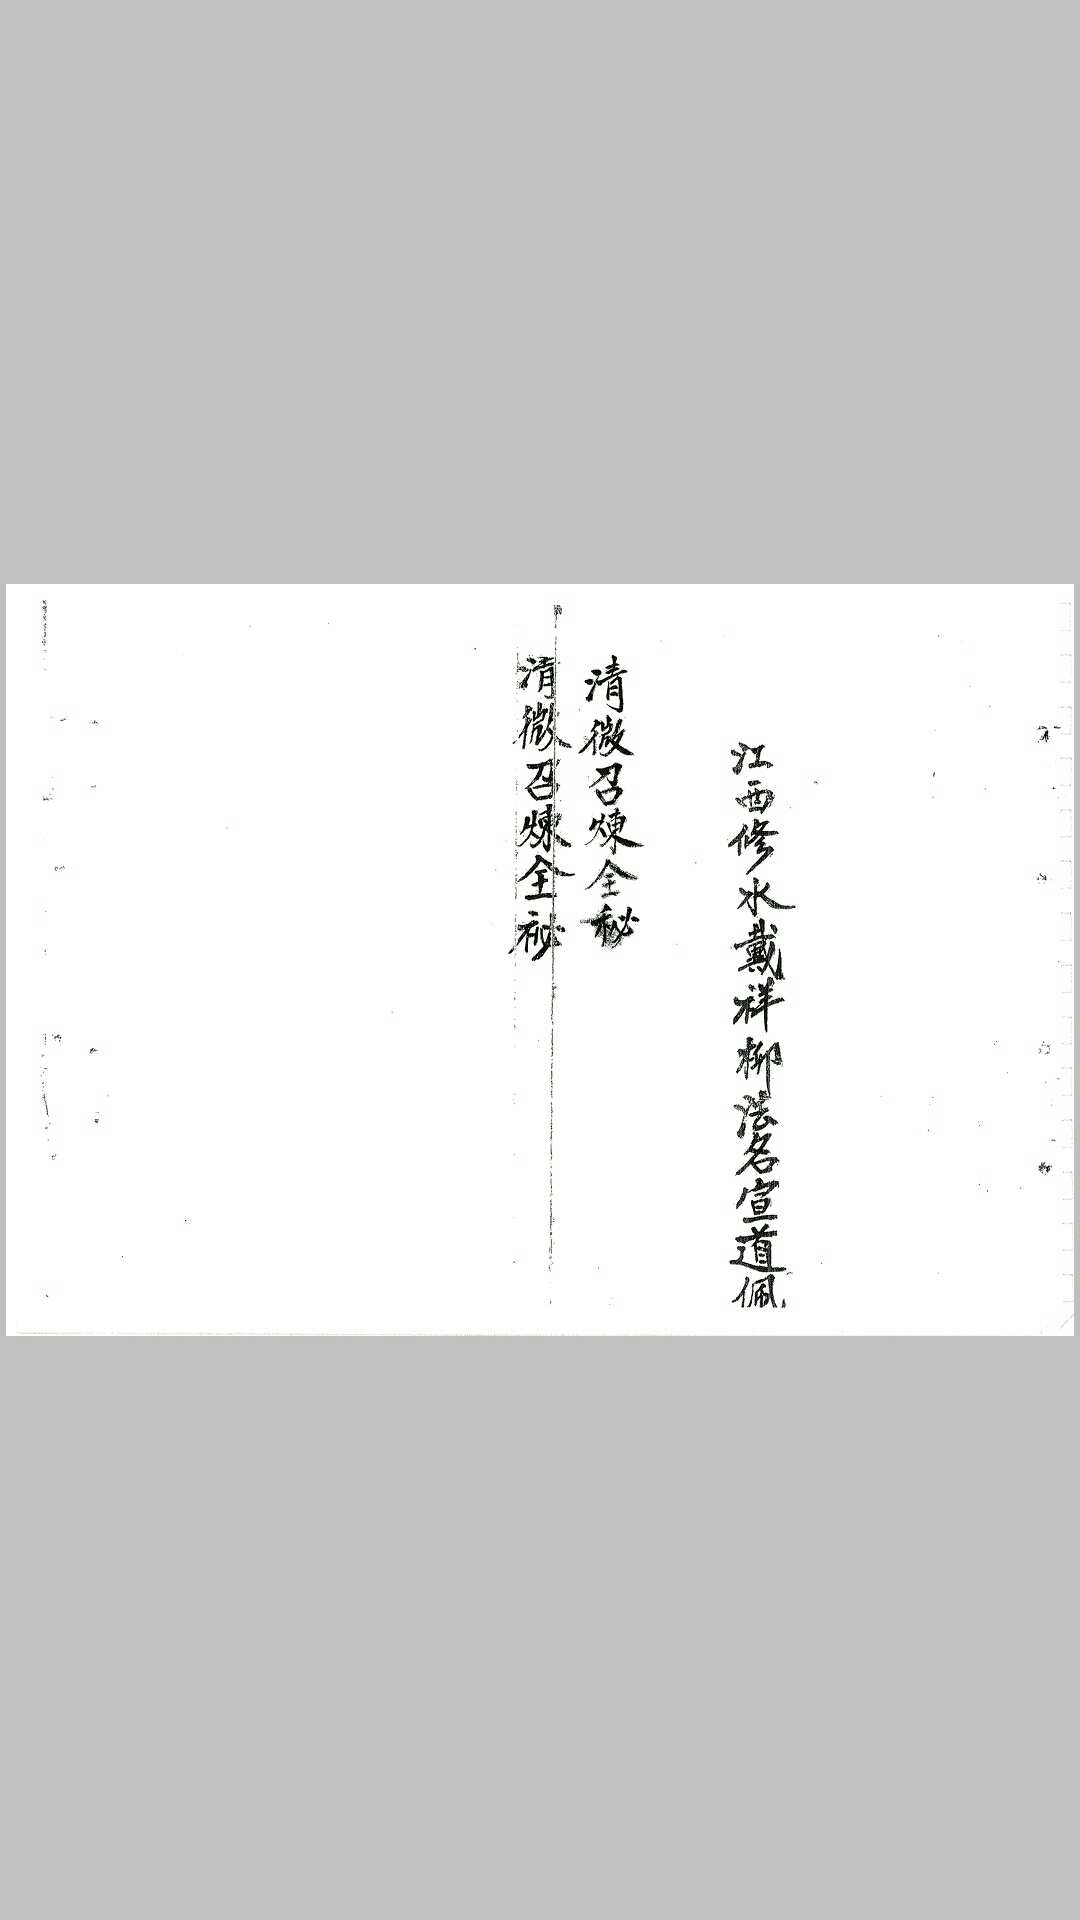 江西修水戴祥柳法名宣道佩
清微召煉全秘
清微召煉全祕